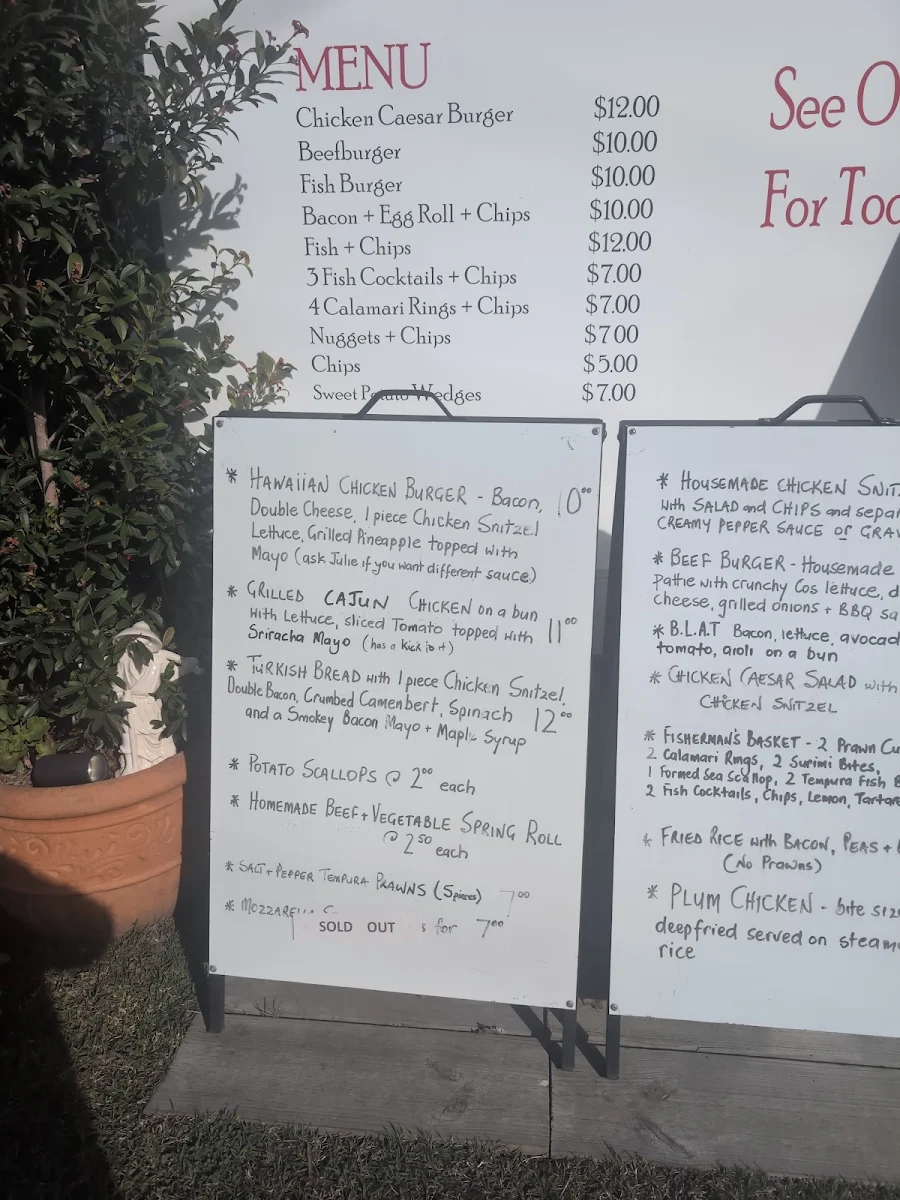 MENU
Chicken Caesar Burger $12.00
Beefburger $10.00
Fish Burger $10.00
Bacon + Egg Roll + Chips $10.00
Fish + Chips $12.00
3 Fish Cocktails + Chips $7.00
4 Calamari Rings + Chips $7.00
Nuggets + Chips $7 00
Chips $5.00
Sweet Potato Wedges $7.00
See O
For Tod
* HAWAIIAN CHICKEN BURGER - Bacon, 10⁰⁰
Double Cheese, 1 piece Chicken Snitzel
Lettuce, Grilled Pineapple topped with
Mayo (ask Julie if you want different sauce)
* GRILLED CAJUN CHICKEN on a bun
with Lettuce, sliced Tomato topped with 11⁰⁰
Sriracha Mayo (has a kick to it)
* TURKISH BREAD with 1 piece Chicken Snitzel,
Double Bacon, Crumbed Camenbert, Spinach 12⁰⁰
and a Smokey Bacon Mayo + Maple Syrup
* POTATO SCALLOPS @ 2⁰⁰ each
* HOMEMADE BEEF + VEGETABLE SPRING ROLL
@ 2⁵⁰ each
* SALT + PEPPER TEMPURA PRAWNS (5 pieces) 7⁰⁰
* MOZZARELLA
SOLD OUT s for 7⁰⁰
* HOUSEMADE CHICKEN SNITZ
with SALAD and CHIPS and separ
CREAMY PEPPER SAUCE or GRAV
* BEEF BURGER - Housemade
pattie with crunchy Cos lettuce, d
cheese, grilled onions + BBQ sa
* B.L.A.T Bacon, lettuce, avocad
tomato, aioli on a bun
* CHICKEN CAESAR SALAD with
CHICKEN SNITZEL
* FISHERMAN'S BASKET - 2 Prawn Cu
2 Calamari Rings, 2 Surimi Bites,
1 Formed Sea Scallop, 2 Tempura Fish B
2 Fish Cocktails, Chips, Lemon, Tartare
* FRIED RICE with BACON, PEAS +
(No Prawns)
* PLUM CHICKEN - bite size
deepfried served on steam
rice